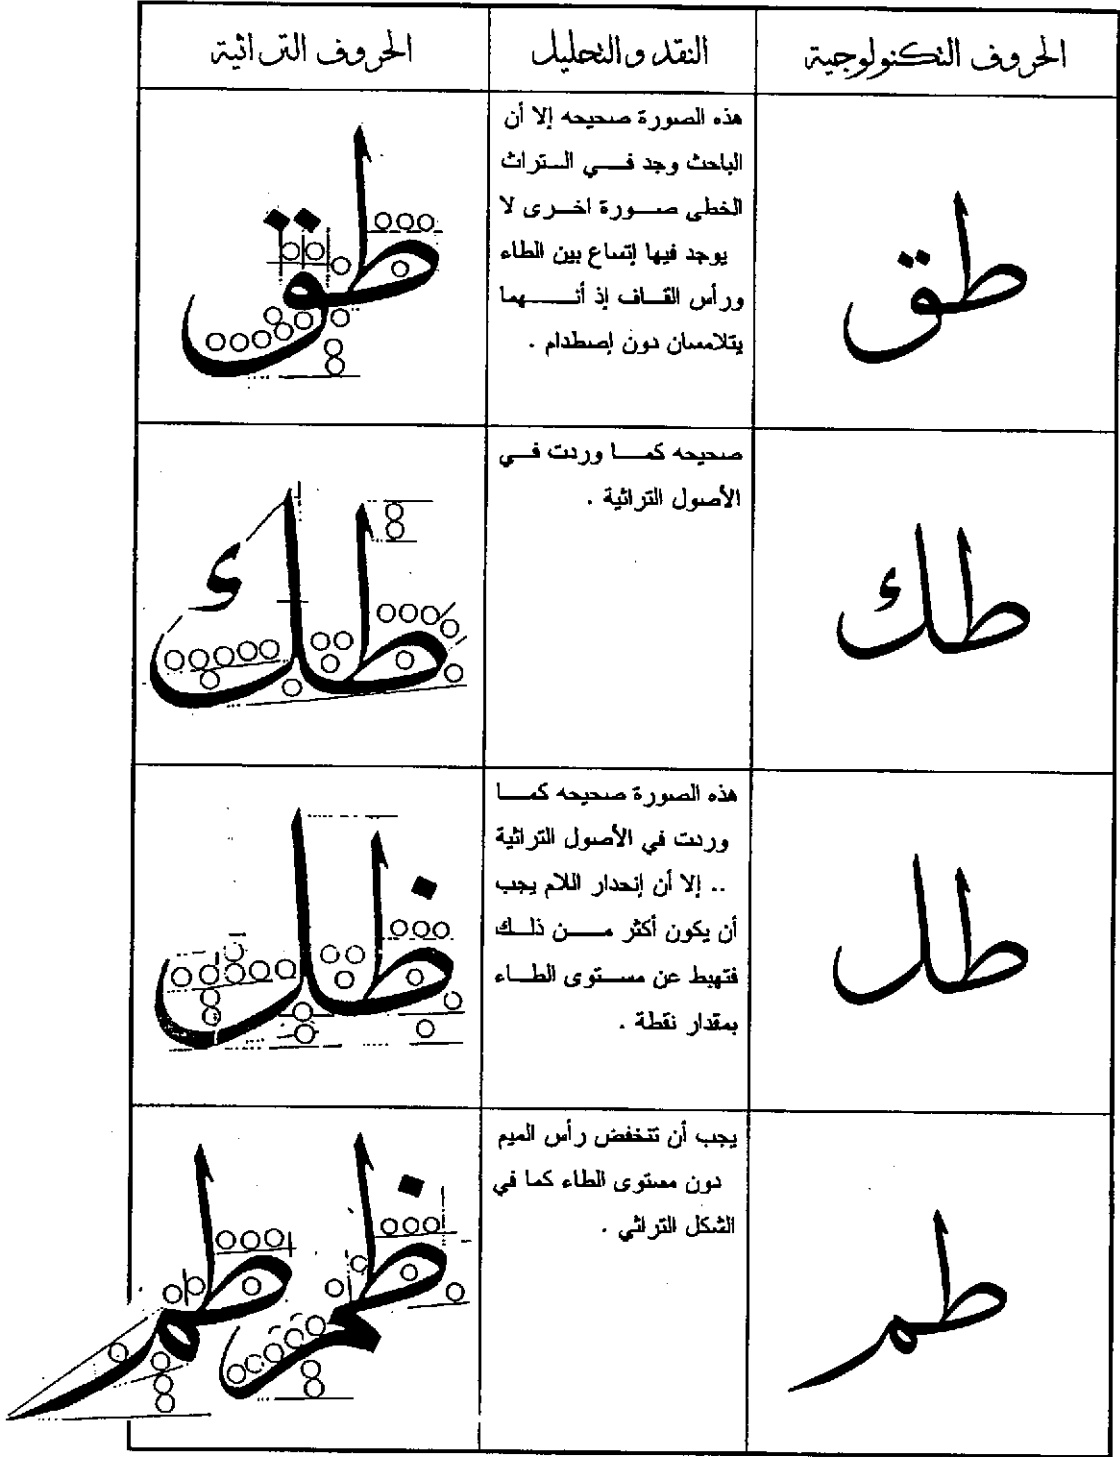 الحروف التكنولوجية
النقد والتحليل
الحروف التراثية
طق
هذه الصورة صحيحه إلا أن
الباحث وجد فـــي الـتراث
الخطى صـــورة اخـــرى لا
يوجد فيها إتساع بين الطاء
ورأس القـــاف إذ أنـــــهما
يتلامسان دون إصطدام .
طق
طك
صحيحه كمـــا وردت فـــي
الأصول التراثية .
طك
طل
هذه الصورة صحيحه كمـــا
وردت في الأصول التراثية
.. إلا أن إنحدار اللام يجب
أن يكون أكثر مـــن ذلـــك
فتهبط عن مستوى الطـــاء
بمقدار نقطة .
ظل
طم
يجب أن تنخفض رأس الميم
دون مستوى الطاء كما في
الشكل التراثي .
ظم طم